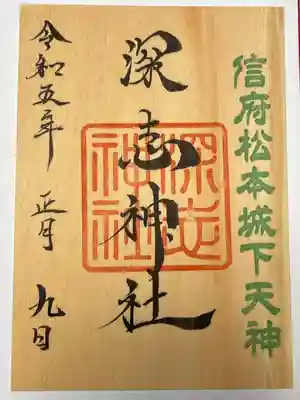 信府松本城下天神
深志神社
深志
神社
令和五年 正月 九日